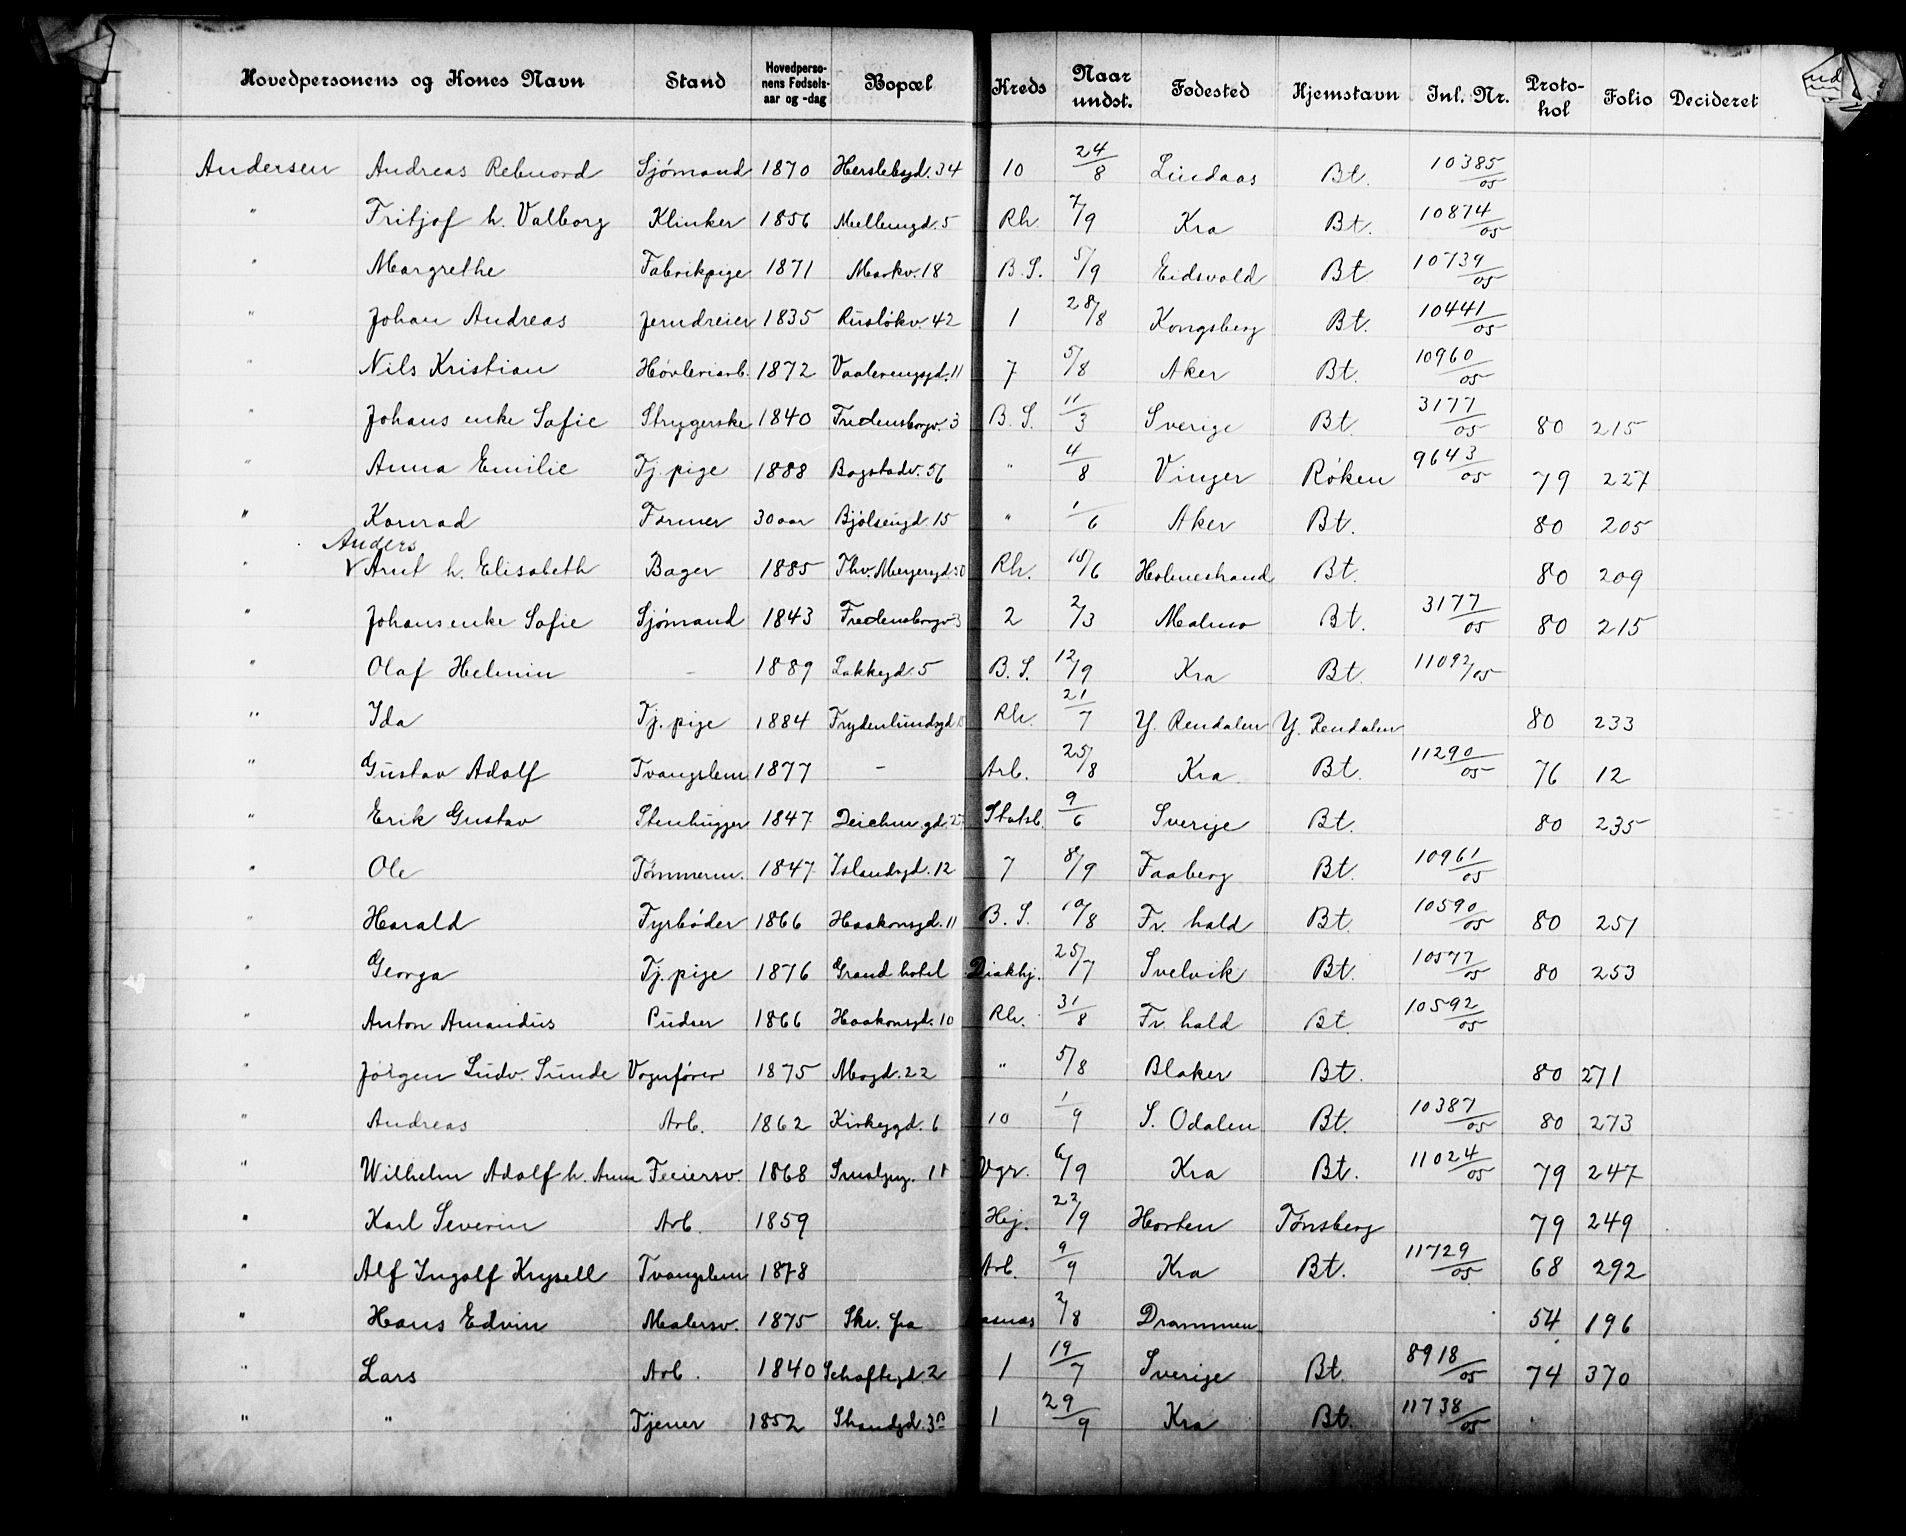 Hovedpersonens og Kones Navn Stand Hovedpersonens Fødselsaar og -dag Bopæl Kreds Naar undst. Fødested Hjemstavn Inl. Nr. Protokol Folio Decideret
Andersen Andreas Rebnord Sjømand 1870 Herslebgd. 34 10 24/8 Lindaas Bt. 10385/05
" Fritjof h. Valborg Klinker 1856 Møllerngd. 5 Rh. 7/9 Kra Bt. 10874/05
" Margrethe Fabrikpige 1871 Markv. 18 B. S. 5/9 Eidsvold Bt 10739/05
" Johan Andreas Jerndreier 1835 Rusløkv. 42 1 28/8 Kongsberg Bt. 10441/05
" Nils Kristian Høvleriarb. 1872 Vaalerengsgd. 11 7 5/8 Aker Bt. 10960/05
" Johans enke Sofie Strygerske 1840 Fredensborgv. 3 B. S. 11/3 Sverige Bt. 3177/05 80 215
" Anna Emilie Tj. pige 1888 Bogstadv. 56 " 4/8 Vinger Røken 9643/05 79 227
" Konrad Former 30 aar Bjølsengd. 15 " 1/6 Aker Bt. 80 205
Anders
" Arnt h. Elisabeth Bager 1885 Thv. Meyersgd. 50 Rh. 10/6 Holmestrand Bt. 80 209
" Johans enke Sofie Sjømand 1843 Fredensborgv 3 2 2/3 Malmø Bt. 3177/05 80 215
" Olaf Helmin - 1889 Lakkegd. 5 B. S. 12/9 Kra Bt. 11092/05
" Ida Tj. pige 1884 Frydenlundsgd Rh. 21/7 Y. Rendalen Y. Rendalen 80 233
" Gustav Adolf Tvangslem 1877 - Arb. 25/8 Kra Bt. 11290/05 76 12
" Erik Gustav Stenhugger 1847 Deichm. gd. Statsb. 9/6 Sverige Bt. 80 235
" Ole Tømmerm. 1847 Islandsgd. 12 7 8/9 Faaberg Bt. 10961/05
" Harald Fyrbøder 1866 Haakonsgd. 11 B. S. 19/8 Fr. hald Bt. 10590/05 80 251
" Georga Tj. pige 1876 Grand hotel Diakhj. 25/7 Svelvik Bt. 10577/05 80 253
" Anton Amandus Pudser 1866 Haakonsgd. 10 Rh. 31/8 Fr. hald Bt. 10592/05
" Jørgen Ludv. Sunde Vognfører 1875 Mogd. 22 " 5/8 Blaker Bt. 80 271
" Andreas Arb. 1862 Kirkegd. 6 10 1/9 S. Odalen Bt. 10387/05 80 273
" Wilhelm Adolf h. Anna Feiersv. 1868 11 Vgr. 6/9 Kra Bt. 11024/05 79 247
" Karl Severin Arb. 1859 Hej. 22/9 Horten Tønsberg 79 249
" Alf Ingolf Krysell Tvangslem 1878 Arb. 9/9 Kra Bt. 11729/05 68 292
" Hans Edvin Malersv. 1875 Skr. fra 2/8 Drammen 54 196
" Lars Arb. 1840 Schaftegd. 2 1 19/7 Sverige Bt. 8918/05 74 370
" " Tjener 1852 Strandgd. 1 29/9 Kra Bt. 11738/05